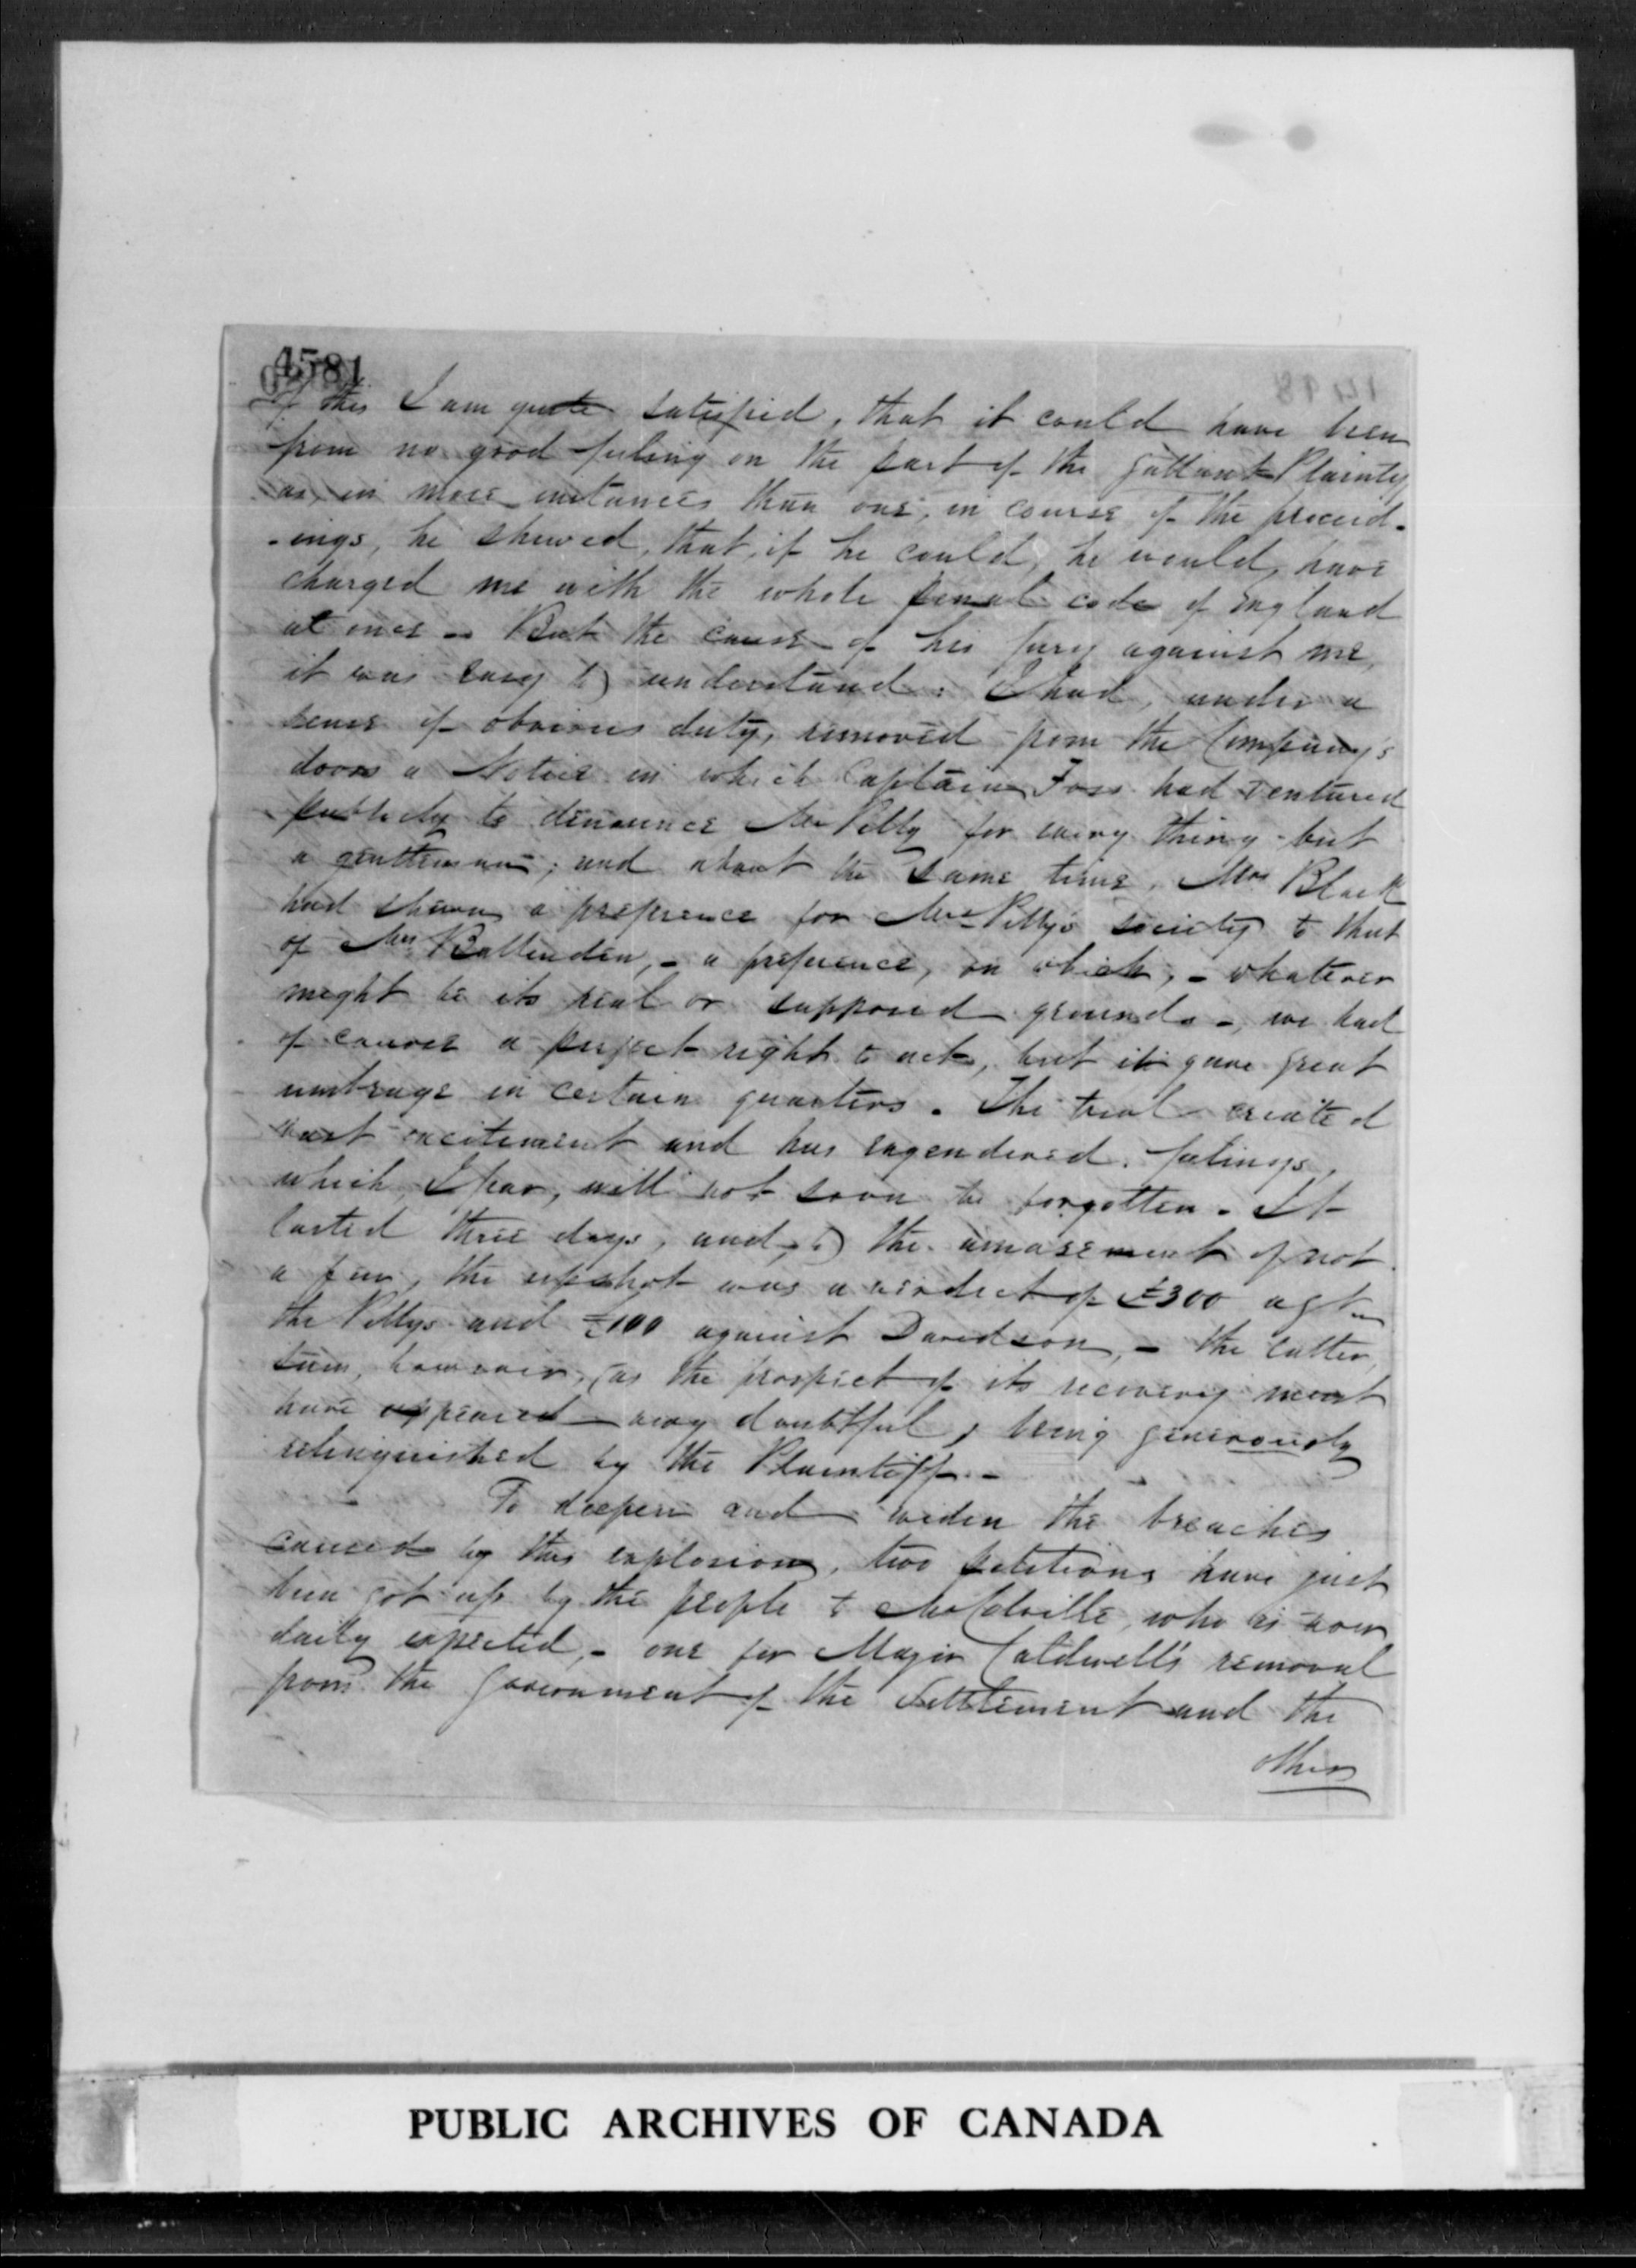 4581
Of this I am quite satisfied, that it could have been
from no good feeling on the part of the gallant Plaintiff
as, in more instances than one, in course of the proceed-
-ings, he shewed, that, if he could, he would, have
charged me with the whole penal code of England
at once - But the cause of his fury against me,
it was easy to understand. I had, under a
sense of obvious duty, removed from the Company's
doors a Notice in which Captain Foss had ventured
publicly to denounce Mr Pelly for every thing but
a gentleman; and about the same time, Mrs Black
had shewn a preference for Mrs Pelly's society to that
of Mrs Ballenden, - a preference, on which, - whatever
might be its real or supposed grounds - we had
of course a perfect right to act, but it gave great
umbrage in certain quarters. The trial created
vast excitement and has engendered feelings,
which, I fear, will not soon be forgotten. It
lasted three days, and, to the amazement of not
a few, the upshot was a verdict of £300 agt
the Pellys and £100 against Davidson, - the latter
sum, however, (as the prospect of its recovery must
have appeared very doubtful, being generously
relinquished by the Plaintiff. -
To deepen and widen the breaches
caused by this explosion, two petitions have just
been got up by the people to Mr Colvile, who is now
daily expected, - one for Major Caldwell's removal
from the Government of the Settlement and the
other
PUBLIC ARCHIVES OF CANADA